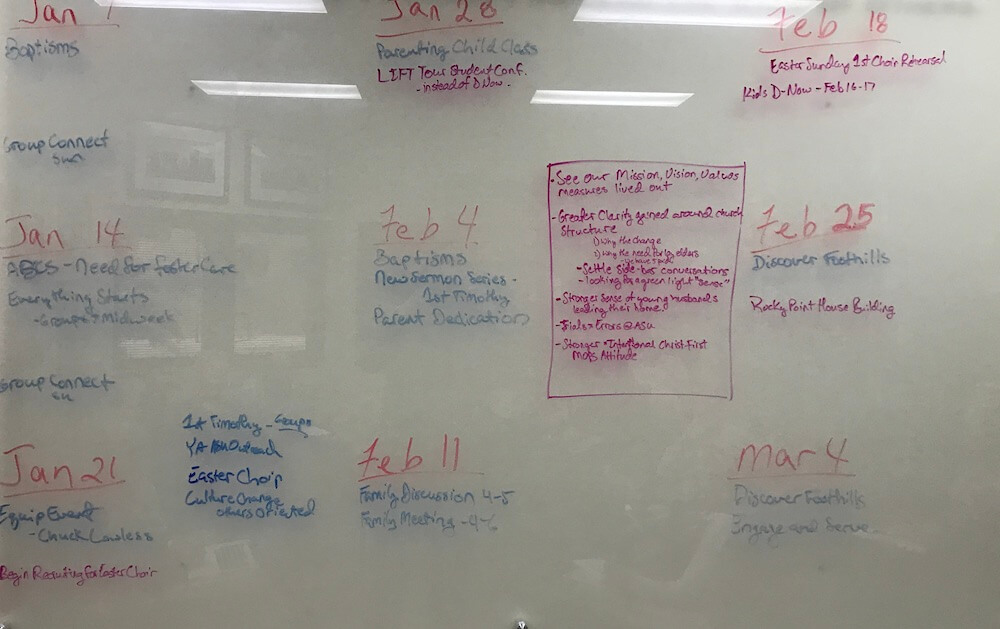 Jan 7
Baptisms
Group Connect
Sun
Jan 14
ABCS - Need for foster care
Everything Starts
- Groups + Midweek
Group Connect
Jan 21
Equip Event
- Chuck Lawless
Begin Recruiting for Easter Choir
1st Timothy - Groups
YA
Outreach
Easter Choir
Culture Change
others oriented
Jan 28
Parenting Child Class
LIFT Tour Student Conf.
- instead of D Now -
Feb 4
Baptisms
New Sermon Series -
1st Timothy
Parent Dedication
Feb 11
Family Discussion 4-5
Family Meeting - 4-6
• See our Mission, Vision, Values
measures lived out
- Greater Clarity gained around church
Structure
1) Why the change
2) Why the need for lay elders
- Settle side-bar conversations
- looking for a green light "sense"
- Stronger sense of young husbands
leading their home.
- Trials + Errors @ ASU
- Stronger + Intentional Christ-First
Attitude
Feb 18
Easter Sunday 1st Choir Rehearsal
Kids D-Now - Feb 16-17
Feb 25
Discover Foothills
Rocky Point House Building
Mar 4
Discover Foothills
Engage and Serve